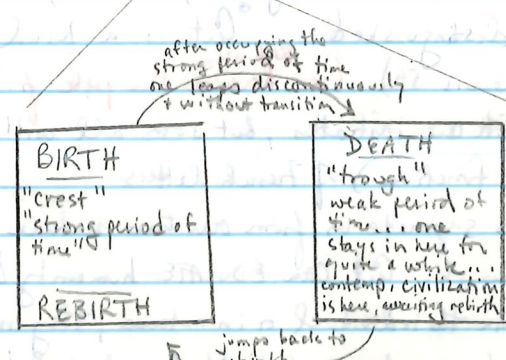 after occupying the
strong period of time
one leaps discontinuously
+ without transition
BIRTH
"crest"
"strong period of
time"
REBIRTH
DEATH
"trough"
weak period of
time... one
stays in here for
quite a while...
contemp. civilization
is here, awaiting rebirth
jumps back to